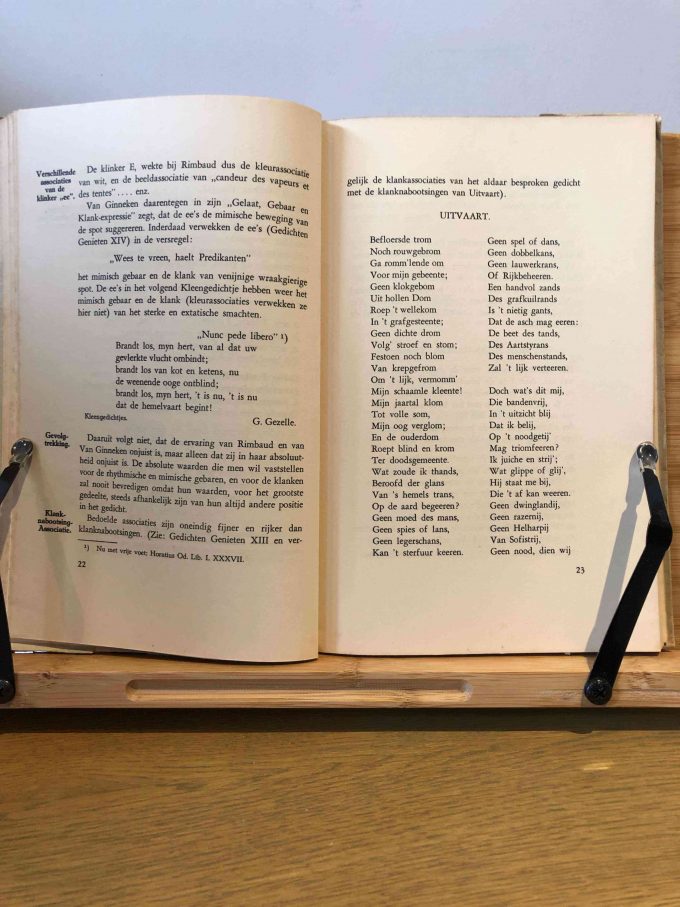 Verschillende
associaties
van de
klinker „ee".
De klinker E, wekte bij Rimbaud dus de kleurassociatie
van wit, en de beeldassociatie van „candeur des vapeurs et
des tentes" . . . . enz.
Van Ginneken daarentegen in zijn „Gelaat, Gebaar en
Klank-expressie" zegt, dat de ee's de mimische beweging van
de spot suggereren. Inderdaad verwekken de ee's (Gedichten
Genieten XIV) in de versregel:
„Wees te vreen, haelt Predikanten"
het mimisch gebaar en de klank van venijnige wraakgierige
spot. De ee's in het volgend Kleengedichtje hebben weer het
mimisch gebaar en de klank (kleurassociaties verwekken ze
hier niet) van het sterke en extatische smachten.
„Nunc pede libero" ¹)
Brandt los, myn hert, van al dat uw
gevlerkte vlucht ombindt;
brandt los van kot en ketens, nu
de weenende ooge ontblind;
brandt los, myn hert, 't is nu, 't is nu
dat de hemelvaart begint!
Kleengedichtjes.
G. Gezelle.
Gevolg-
trekking.
Daaruit volgt niet, dat de ervaring van Rimbaud en van
Van Ginneken onjuist is, maar alleen dat zij in haar absoluut-
heid onjuist is. De absolute waarden die men wil vaststellen
voor de rhythmische en mimische gebaren, en voor de klanken
zal nooit bevredigen omdat hun waarden, voor het grootste
gedeelte, steeds afhankelijk zijn van hun altijd andere positie
in het gedicht.
Klank-
nabootsing-
Associatie.
Bedoelde associaties zijn oneindig fijner en rijker dan
klanknabootsingen. (Zie: Gedichten Genieten XIII en ver-
¹) Nu met vrije voet; Horatius Od. Lib. I. XXXVII.
22
gelijk de klankassociaties van het aldaar besproken gedicht
met de klanknabootsingen van Uitvaart).
UITVAART.
Befloersde trom
Noch rouwgebrom
Ga romm'lende om
Voor mijn gebeente;
Geen klokgebom
Uit hollen Dom
Roep 't wellekom
In 't grafgesteente;
Geen dichte drom
Volg' stroef en stom;
Festoen noch blom
Van krepgefrom
Om 't lijk, vermomm'
Mijn schaamle kleente!
Mijn jaartal klom
Tot volle som,
Mijn oog verglom;
En de ouderdom
Roept blind en krom
Ter doodsgemeente.
Wat zoude ik thands,
Beroofd der glans
Van 's hemels trans,
Op de aard begeeren?
Geen moed des mans,
Geen spies of lans,
Geen legerschans,
Kan 't sterfuur keeren.
Geen spel of dans,
Geen dobbelkans,
Geen lauwerkrans,
Of Rijkbeheeren.
Een handvol zands
Des grafkuilrands
Is 't nietig gants,
Dat de asch mag eeren:
De beet des tands,
Des Aartstyrans
Des menschenstands,
Zal 't lijk verteeren.
Doch wat's dit mij,
Die bandenvrij,
In 't uitzicht blij
Dat ik belij,
Op 't noodgetij'
Mag triomfeeren?
Ik juiche en strij';
Wat glippe of glij',
Hij staat me bij,
Die 't af kan weeren.
Geen dwinglandij,
Geen razernij,
Geen Helharpij
Van Sofistrij,
Geen nood, dien wij
23